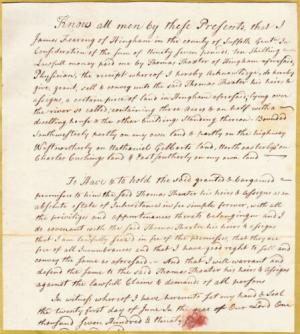 Know all men by these Presents, that I
James Fearing of Hingham in the county of Suffolk Gent: In
Consideration of the sum of Ninety seven pounds ten shilling
Lawfull money paid me by Thomas Thaxter of Hingham aforesaid,
Physician, the receipt whereof I hereby acknowledge, do hereby
give, grant, sell & convey unto the said Thomas Thaxter his heirs &
assigns, a certain piece of land in Hingham aforesaid, lying over
the river so called, containing three acres & an half with a
dwelling house & the other buildings standing thereon. Bounded
Southwesterly partly on my own land & partly on the highway
Westnortherly on Nathaniel Gilberts land, Northeasterly on
Charles Cushings land & Eastsoutherly on my own land
To Have & to hold the said granted & bargained
premises to him the said Thomas Thaxter his heirs & assigns as an
absolute estate of Inheritance in fee simple forever, with all
the priviliges and appurtenances thereto belonging and I
do covenant with the said Thomas Thaxter his heirs & assigns
that I am lawfully seized in fee of the premises, that they are
free of all incumbrances and that I have good right to sell and
convey the same as aforesaid. And that I will warrant and
defend the same to the said Thomas Thaxter his heirs & assigns
against the lawfull Claims & demands of all persons
In witness whereof I have hereunto set my hand & seal
the twenty first day of June In the year of Our Lord One
thousand seven Hundred & ninety